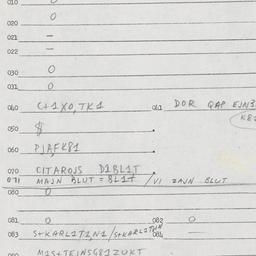 010
0
020
021 -
022 -
030 0
031 0
040 C+1X0,TK1 041 DOR QAP EJN3
050 $ .
060 PJA,FK81 .
070 CITAROJS D1BL1T .
071 MAJN BLUT = BL1T / VI ZAJN BLUT
080 0
081 0 082 0
083 S+KARL1T1,N1 / S+KARL1T1,N 084 -
M1S+TEJNSG81ZUKT